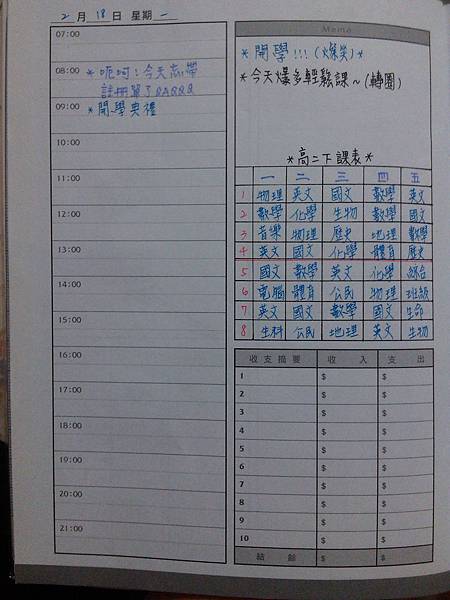 2 月 18 日 星期 一
07:00
08:00 *呃呵!今天忘帶
註冊單了QAQQQ
09:00 *開學典禮
10:00
11:00
12:00
13:00
14:00
15:00
16:00
17:00
18:00
19:00
20:00
21:00
Memo
*開學!!!(爆笑)*
*今天爆多輕鬆課~(轉圈)
*高二下課表*
一 二 三 四 五
1 物理 英文 國文 數學 英文
2 數學 化學 生物 數學 國文
3 音樂 物理 歷史 地理 數學
4 英文 國文 化學 體育 歷史
5 國文 數學 英文 化學 綜合
6 電腦 體育 公民 物理 班級
7 英文 國文 數學 國文 生命
8 生科 公民 地理 英文 生物
收支摘要 收 入 支 出
1 $ $
2 $ $
3 $ $
4 $ $
5 $ $
6 $ $
7 $ $
8 $ $
9 $ $
10 $ $
結 餘 $ $